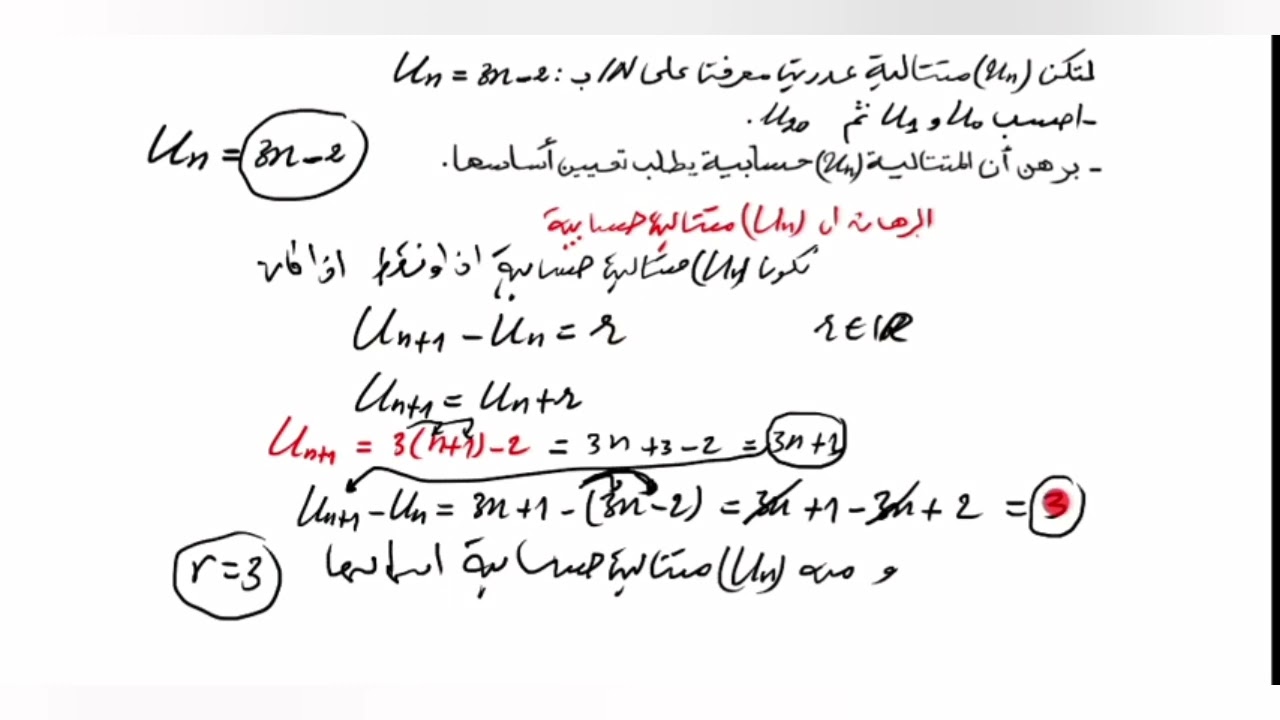 لتكن (Un) متتالية عددية معرفة على IN ب: Un = 3n-2
- احسب U0 و U1 ثم U20.
- برهن أن المتتالية (Un) حسابية يطلب تعيين أساسها.
Un = 3n-2
البرهان ان (Un) متتالية حسابية
تكون (Un) متتالية حسابية اذا وفقط اذا كان
Un+1 - Un = r r∈IR
Un+1 = Un+r
Un+1 = 3(n+1)-2 = 3n+3-2 = 3n+1
Un+1 - Un = 3n+1-(3n-2) = 3n+1-3n+2 = 3
و منه (Un) متتالية حسابية اساسها r=3